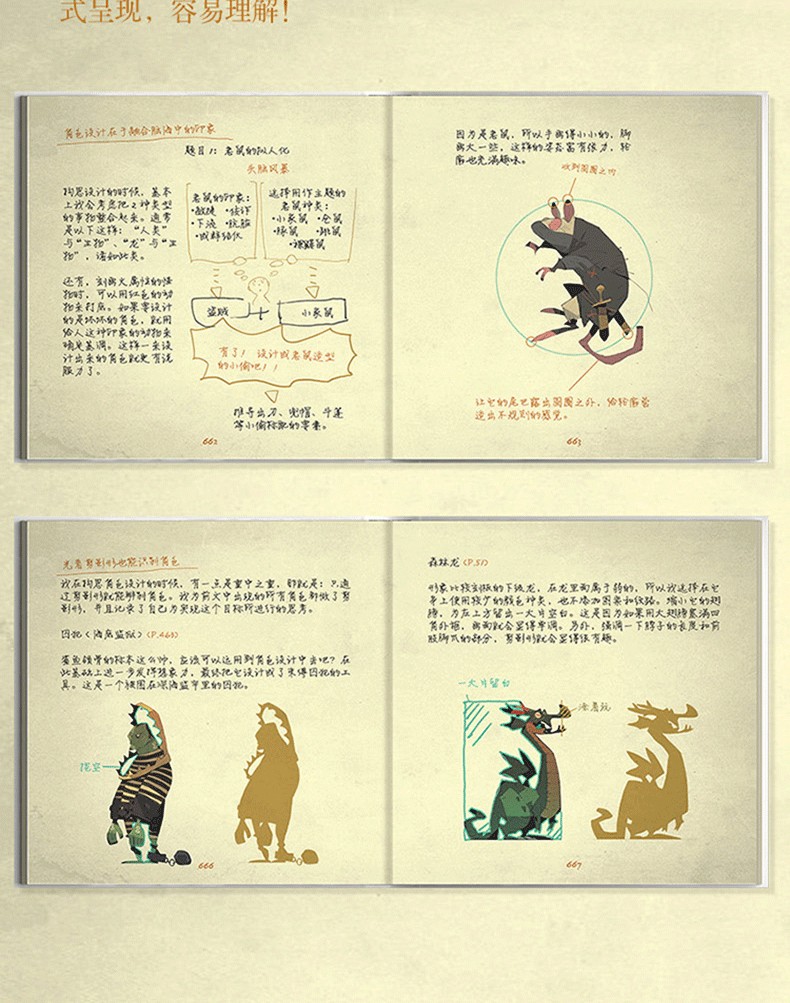 式呈现，容易理解！
角色设计在于融合脑海中的印象
题目1：老鼠的拟人化
头脑风暴
构思设计的时候，基本
上我会考虑把2种类型
的事物整合起来。通常
是以下这样：“人类”
与“工物”、“龙”与“工
物”，诸如此类。
还有，刻画火属性的怪
物时，可以用红色的动
物来打底。如果要设计
的是坏坏的角色，就用
给人这种印象的动物来
确定基调。这样一来设
计出来的角色就更有说
服力了。
老鼠的印象：
•敏捷 •狡诈
•下流 •肮脏
•成群结伙
选择用作主题的
老鼠种类：
•小家鼠 •仓鼠
•豚鼠 •跳鼠
•裸鼹鼠
盗贼
小家鼠
有了！设计成老鼠造型
的小偷吧！！
推导出刀、兜帽、斗篷
等小偷标配的要素。
662
因为是老鼠，所以手画得小小的，脚
画大一些。这样的姿态富有张力，轮
廓也充满趣味。
收到圆圈之内
让它的尾巴露出圆圈之外，给轮廓营
造出不规则的感觉。
663
光看剪影形也能识别角色
我在构思角色设计的时候，有一点是重中之重，那就是：只通
过剪影形就能够到角色。我为前文中出现的所有角色都做了剪
影形，并且记录了自己为实现这个目标所进行的思考。
囚犯（海底监狱）(P.463)
鲨鱼颌骨的标本这么帅，应该可以运用到角色设计中去吧？在
此基础上进一步发挥想象力，最终把它设计成了束缚囚犯的工
具。这是一个被困在深海监牢里的囚犯。
挖空
666
森林龙(P.51)
形象比较呆板的下级龙，在龙里面属于弱的，所以我选择在它
身上使用较少的颜色种类，也不添加图案和纹路。缩小它的翅
膀，为在上方留出一大片空白。这是因为如果用大翅膀塞满四
角外框，画面就会显得单调。另外，强调一下脖子的长度和前
肢脚爪的部分，剪影形就会显得很有趣。
一大片留白
667